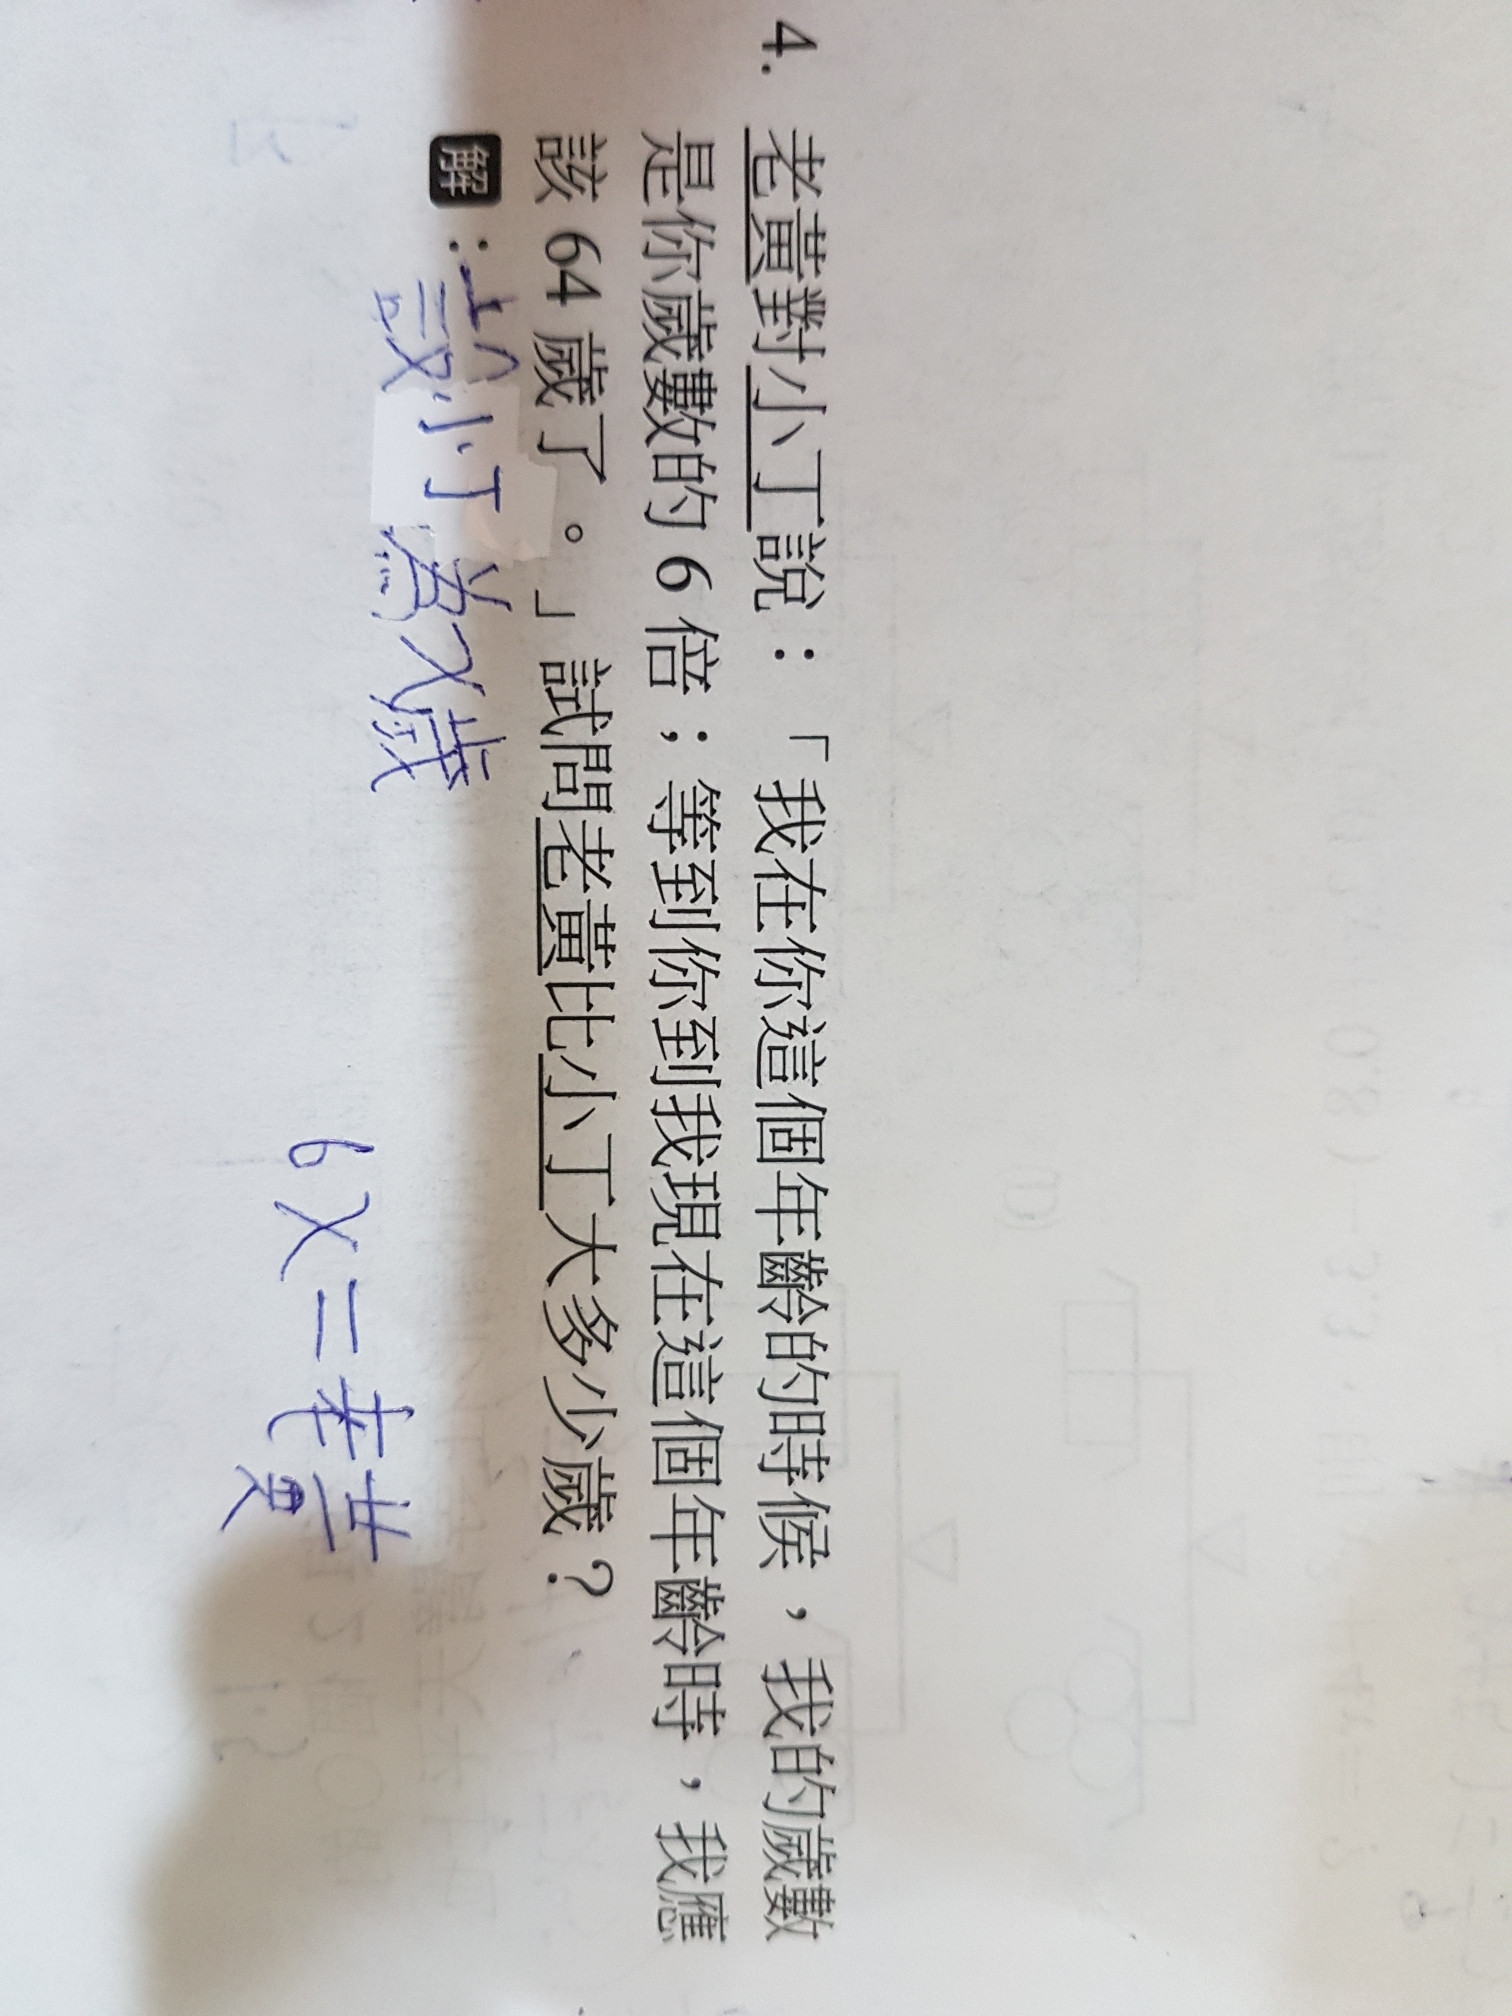 4. 老黃對小丁說：「我在你這個年齡的時候，我的歲數
是你歲數的 6 倍；等到你到我現在這個年齡時，我應
該 64 歲了。」試問老黃比小丁大多少歲？
解：設小丁為X歲
6X=老黃